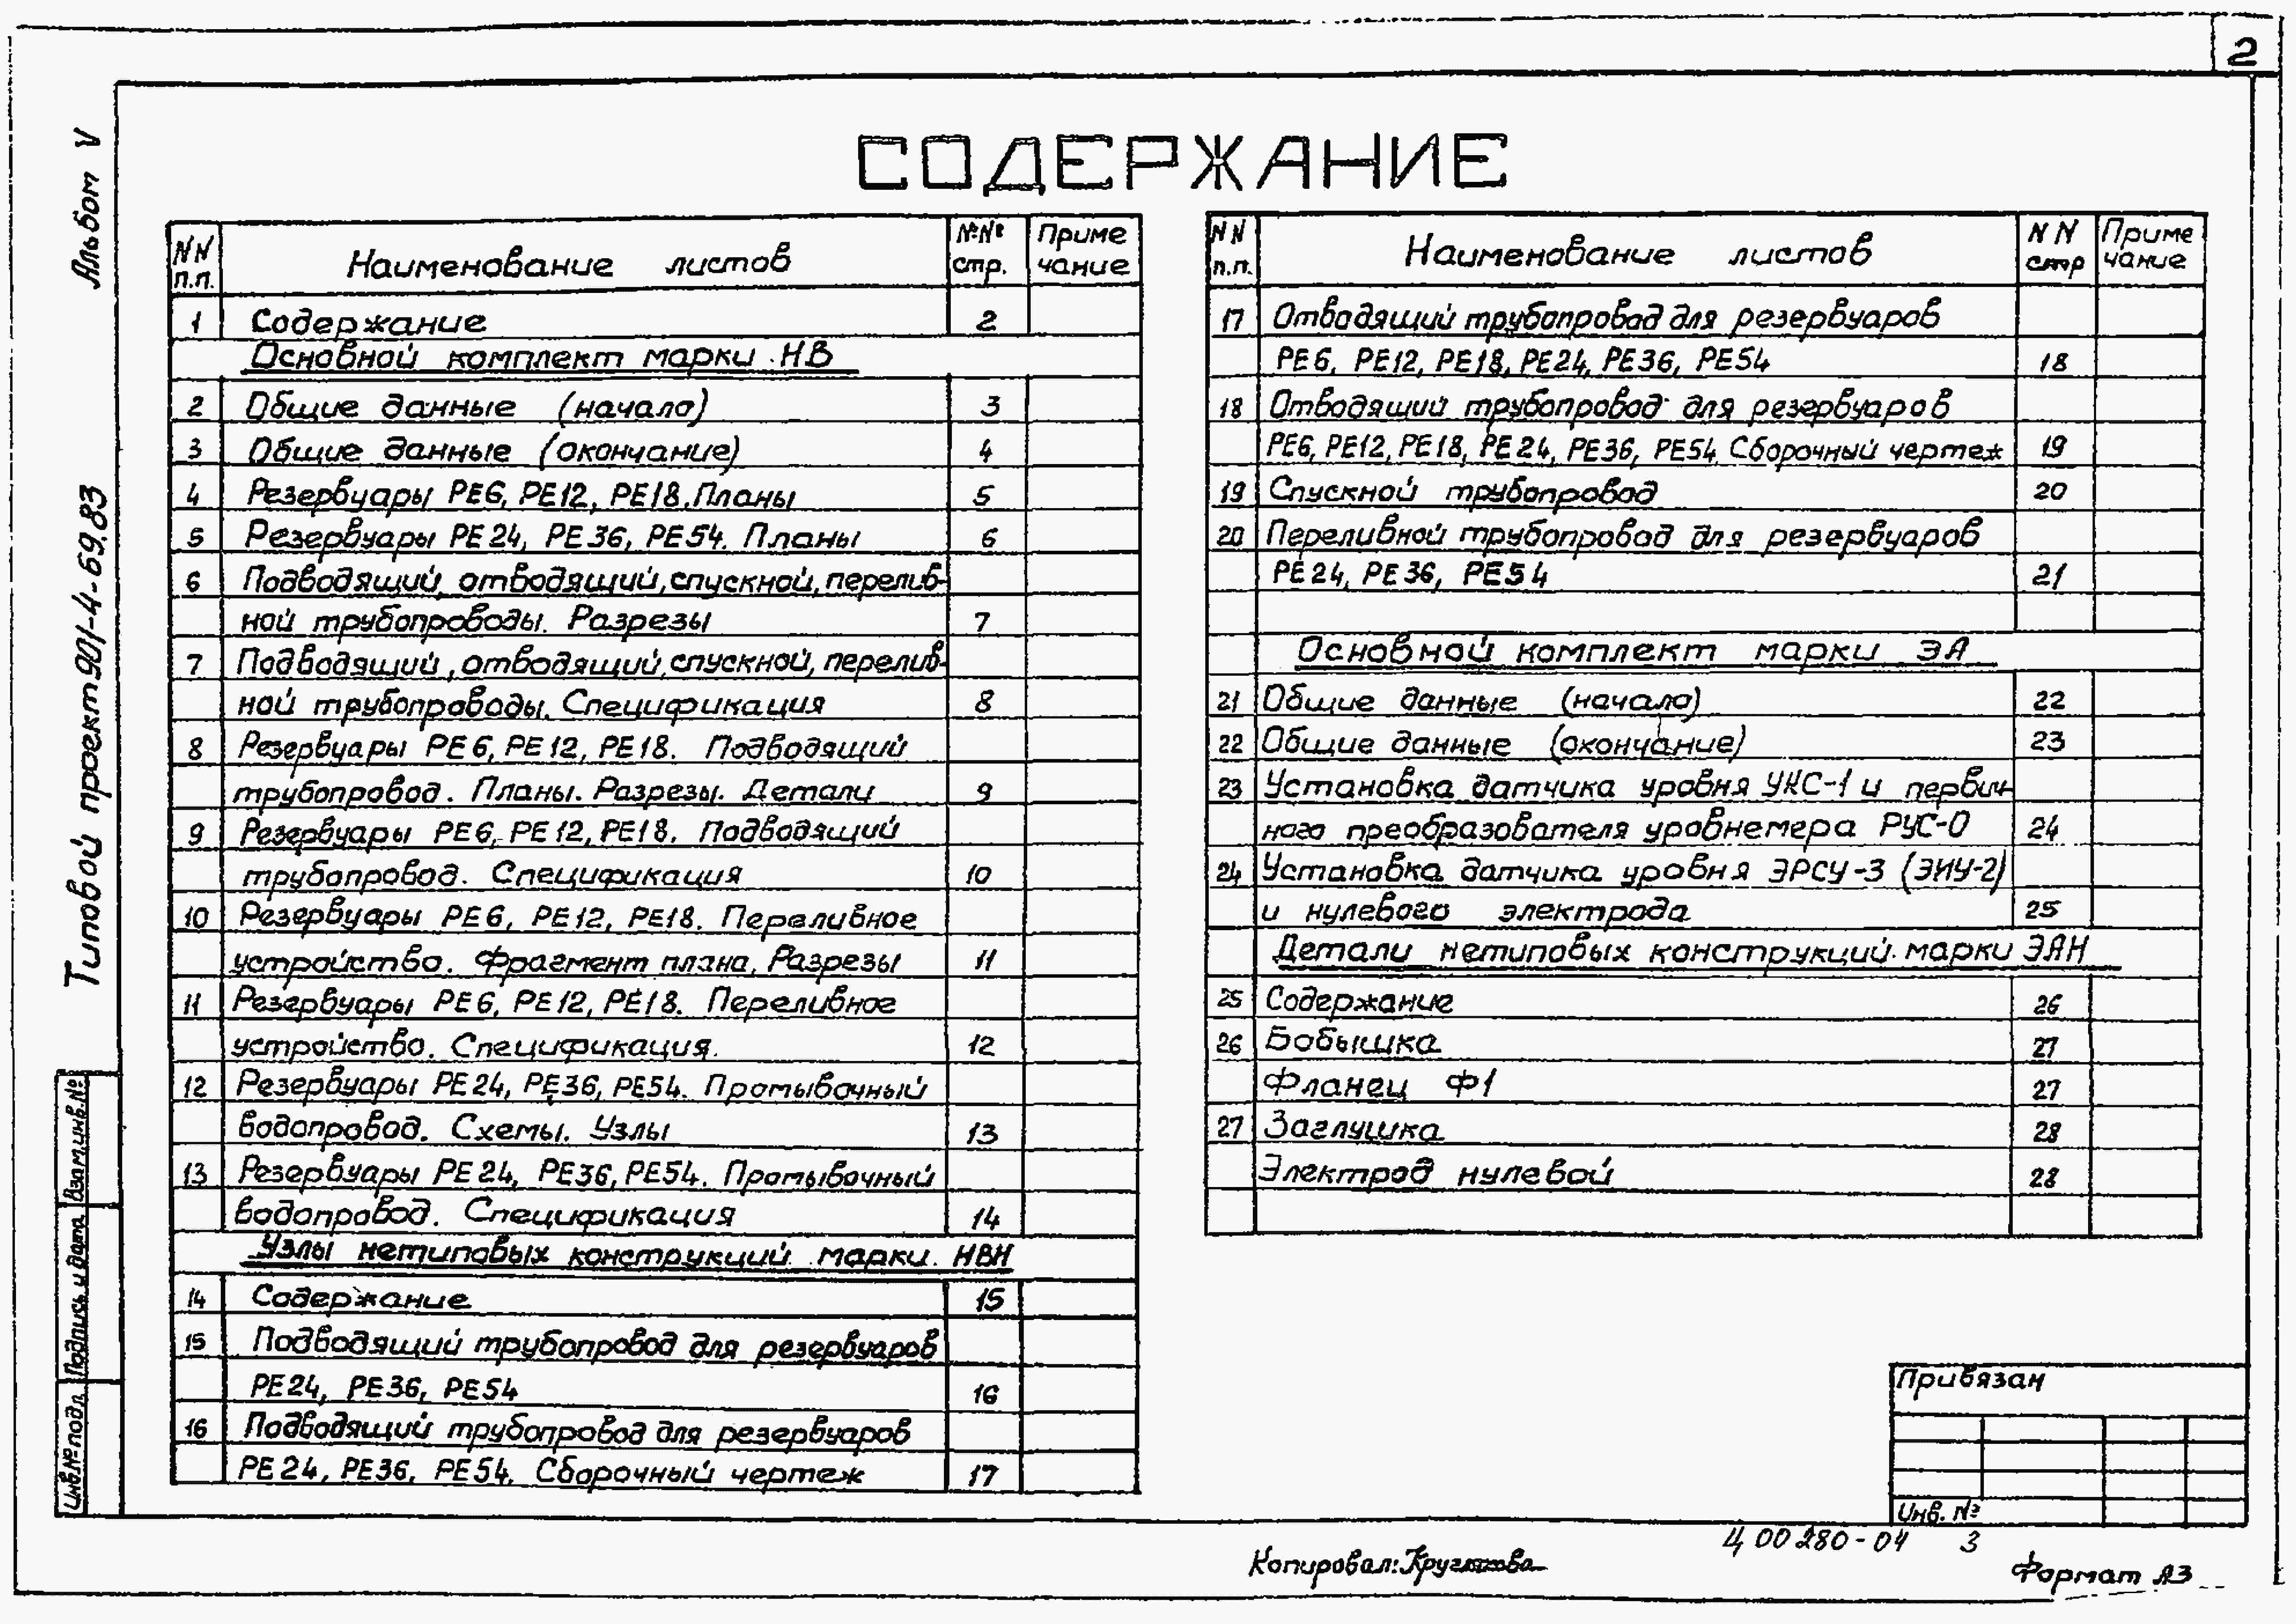 2
Альбом V
Типовой проект 901-4-69.83
СОДЕРЖАНИЕ
NN п.п. Наименование листов №№ стр. Приме чание
1 Содержание 2
Основной комплект марки НВ
2 Общие данные (начало) 3
3 Общие данные (окончание) 4
4 Резервуары РЕ6, РЕ12, РЕ18. Планы 5
5 Резервуары РЕ24, РЕ36, РЕ54. Планы 6
6 Подводящий, отводящий, спускной, перелив-
ной трубопроводы. Разрезы 7
7 Подводящий, отводящий, спускной, перелив-
ной трубопроводы. Спецификация 8
8 Резервуары РЕ6, РЕ12, РЕ18. Подводящий
трубопровод. Планы. Разрезы. Детали 9
9 Резервуары РЕ6, РЕ12, РЕ18. Подводящий
трубопровод. Спецификация 10
10 Резервуары РЕ6, РЕ12, РЕ18. Переливное
устройство. Фрагмент плана, Разрезы 11
11 Резервуары РЕ6, РЕ12, РЕ18. Переливное
устройство. Спецификация. 12
12 Резервуары РЕ24, РЕ36, РЕ54. Промывочный
водопровод. Схемы. Узлы 13
13 Резервуары РЕ24, РЕ36, РЕ54. Промывочный
водопровод. Спецификация 14
Узлы нетиповых конструкций марки НВН
14 Содержание 15
15 Подводящий трубопровод для резервуаров
РЕ24, РЕ36, РЕ54 16
16 Подводящий трубопровод для резервуаров
РЕ24, РЕ36, РЕ54. Сборочный чертеж 17
NN п.п. Наименование листов NN стр Приме чание
17 Отводящий трубопровод для резервуаров
РЕ6, РЕ12, РЕ18, РЕ24, РЕ36, РЕ54 18
18 Отводящий трубопровод для резервуаров
РЕ6, РЕ12, РЕ18, РЕ24, РЕ36, РЕ54 Сборочный чертеж 19
19 Спускной трубопровод 20
20 Переливной трубопровод для резервуаров
РЕ24, РЕ36, РЕ54 21
Основной комплект марки ЭА
21 Общие данные (начало) 22
22 Общие данные (окончание) 23
23 Установка датчика уровня УКС-1 и первич-
ного преобразователя уровнемера РУС-0 24
24 Установка датчика уровня ЭРСУ-3 (ЭИУ-2)
и нулевого электрода 25
Детали нетиповых конструкций марки ЭАН
25 Содержание 26
26 Бобышка 27
Фланец Ф1 27
27 Заглушка 28
Электрод нулевой 28
Взам.инв.№
Подпись и дата
Инв.№подл.
Привязан
Инв. №
Ц 00280-04 3
Копировал:
Формат А3